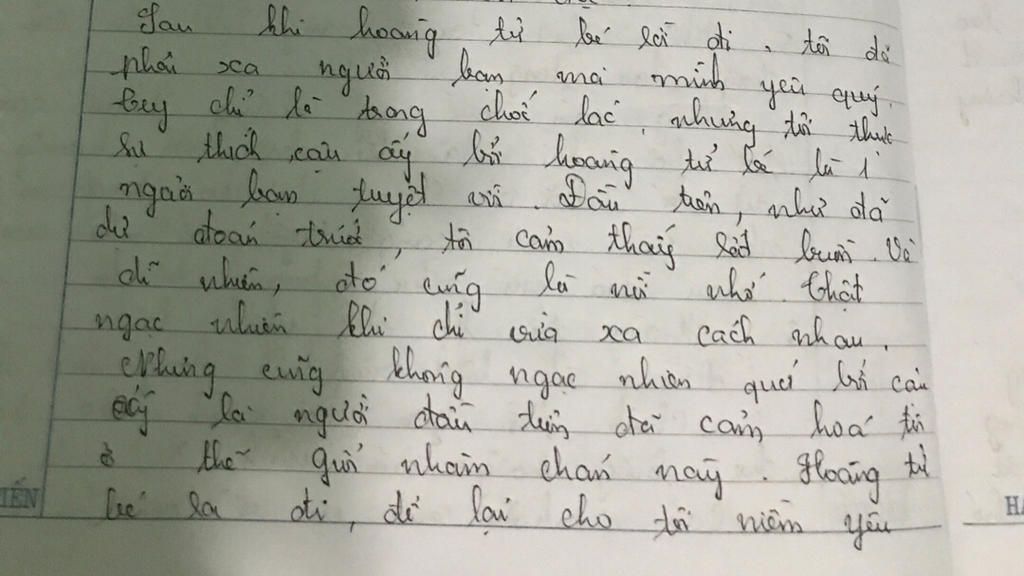 Sau khi hoàng tử bé rời đi, tôi đã
phải xa người bạn mà mình yêu quý.
Tuy chỉ là trong chốc lác, nhưng tôi thực
sự thích cậu ấy bởi hoàng tử bé là 1
người bạn tuyệt vời. Đầu tiên, như đã
dự đoán trước, tôi cảm thấy rất buồn. Và
dĩ nhiên, đó cũng là nỗi nhớ. Thật
ngạc nhiên khi chỉ vừa xa cách nhau.
Nhưng cũng không ngạc nhiên quá bởi cậu
ấy là người đầu tiên đã cảm hoá tôi
ở thế giới nhàm chán này. Hoàng tử
bé ra đi, để lại cho tôi niềm yêu